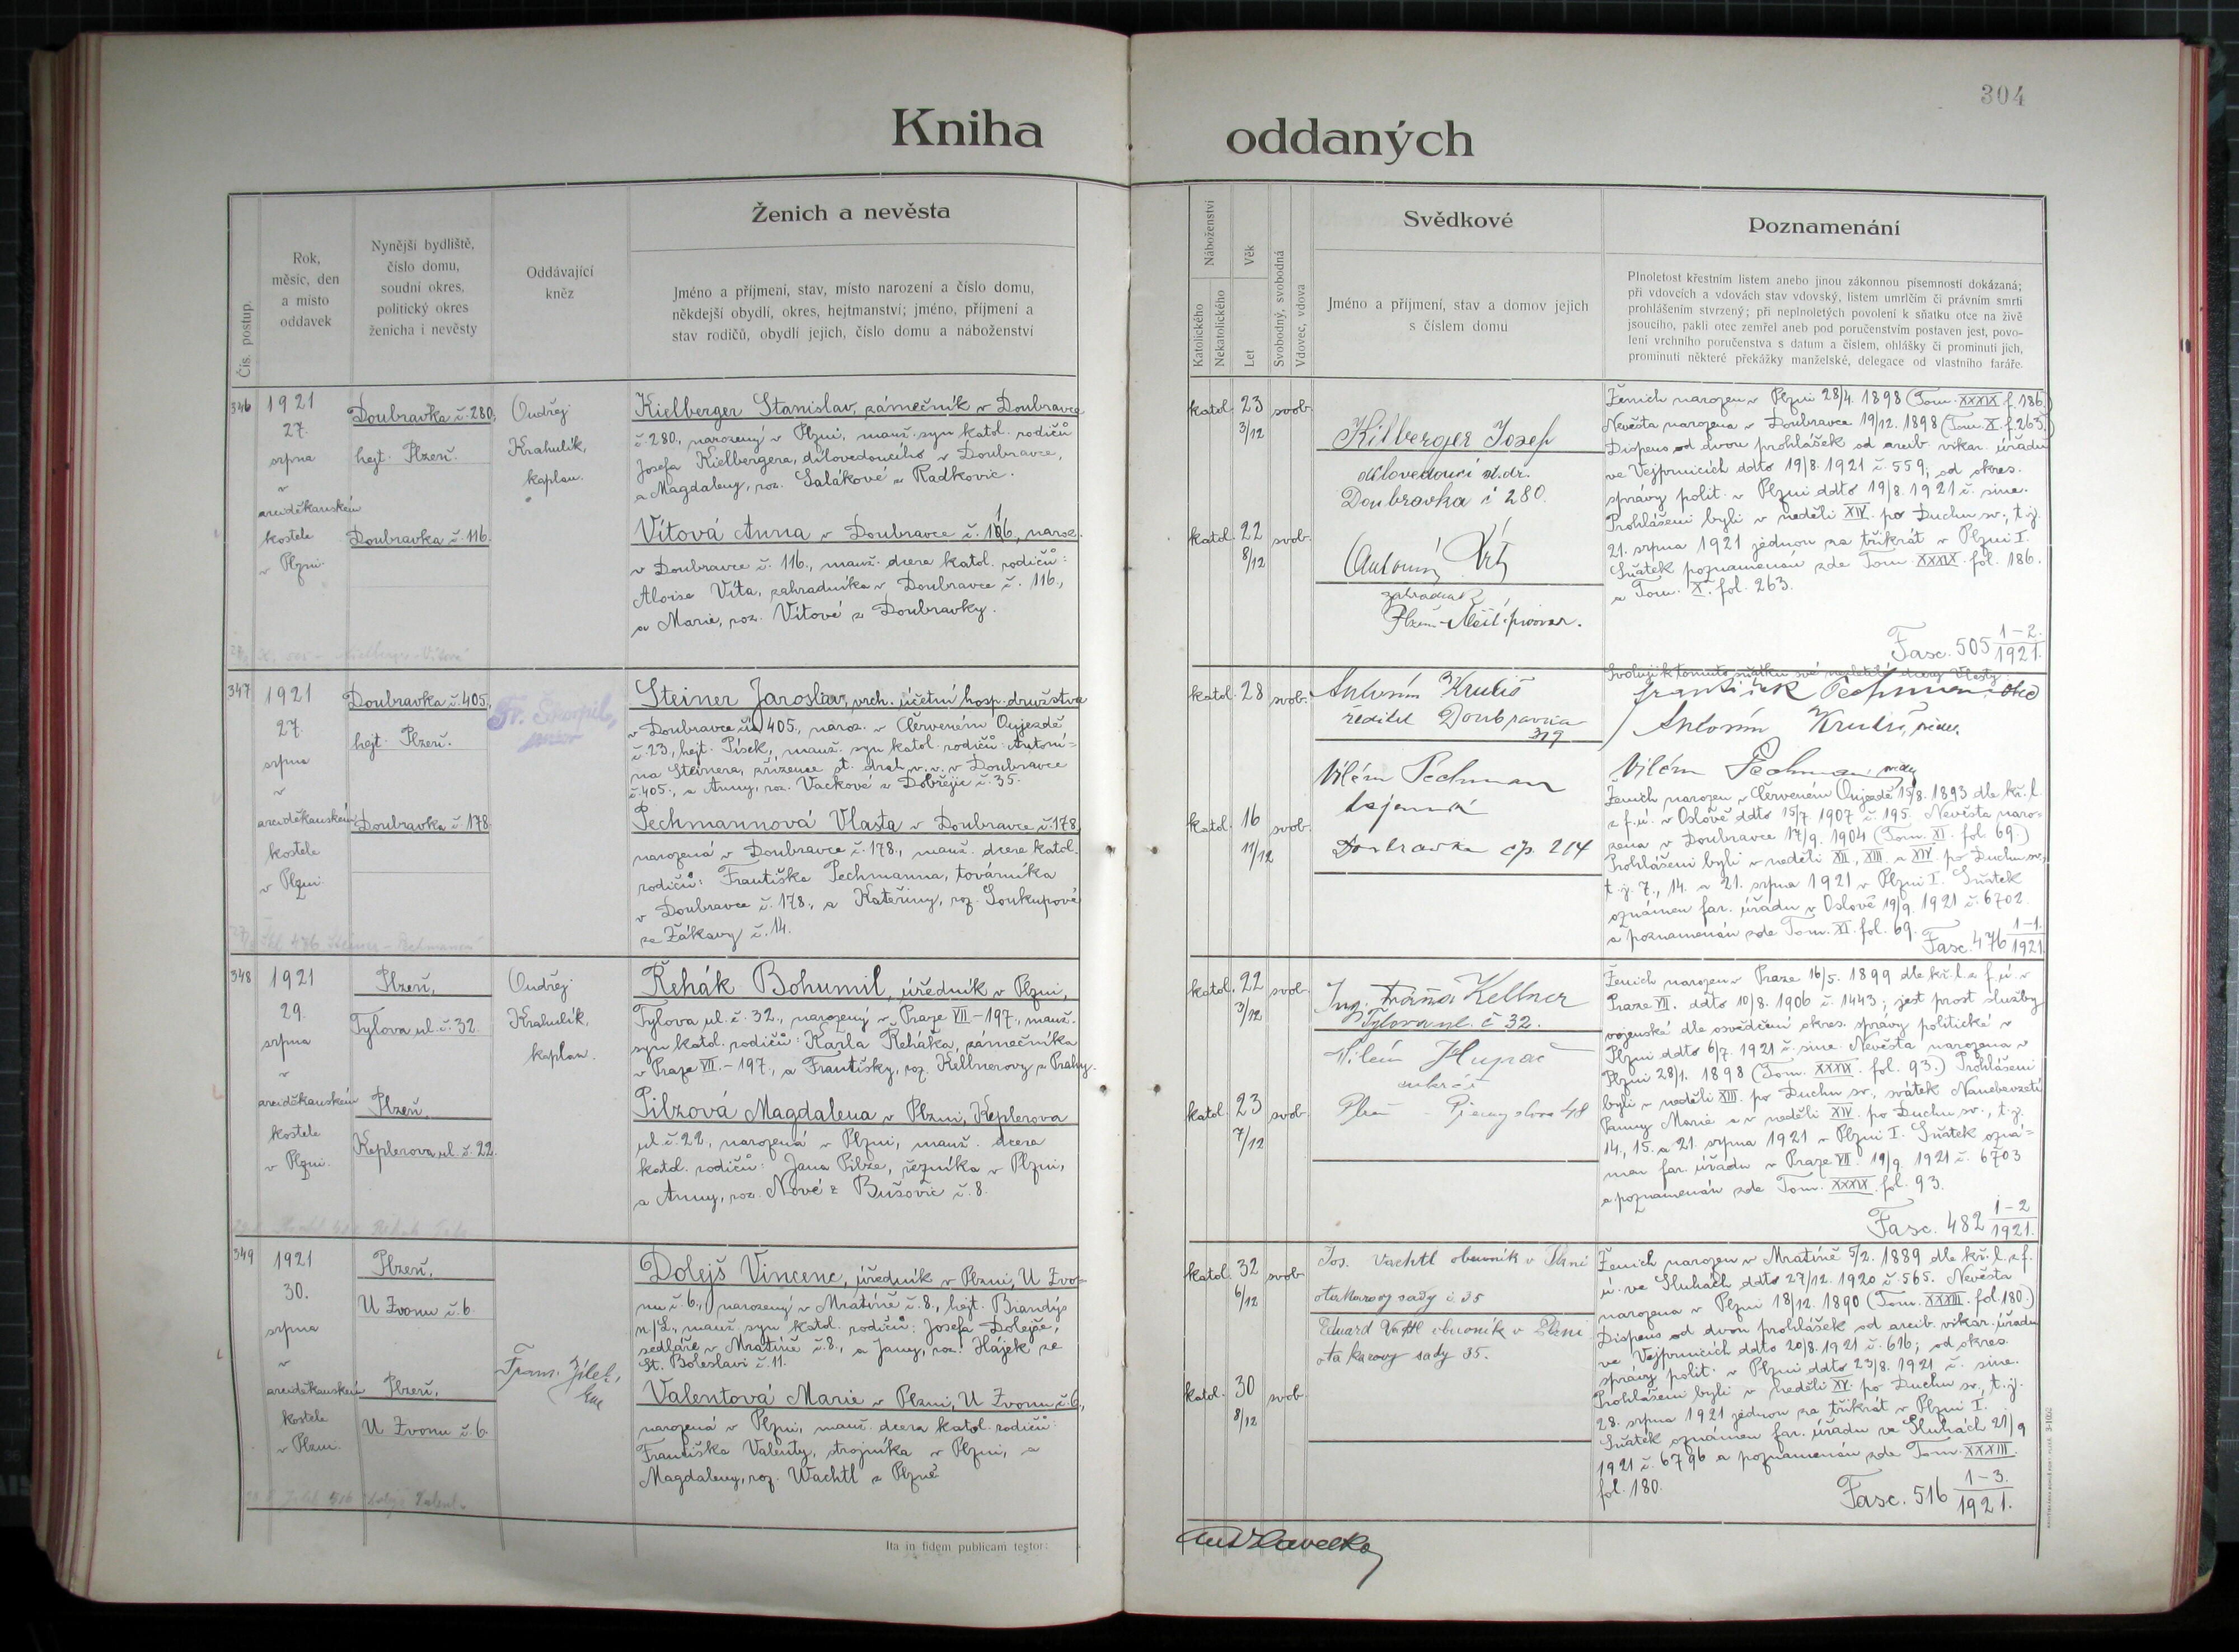 304
Kniha oddaných
Čís. postup.
Rok,
měsíc, den
a místo
oddavek
Nynější bydliště,
číslo domu,
soudní okres,
politický okres
ženicha i nevěsty
Oddávající
kněz
Ženich a nevěsta
Jméno a příjmení, stav, místo narození a číslo domu,
někdejší obydlí, okres, hejtmanství; jméno, příjmení a
stav rodičů, obydlí jejich, číslo domu a náboženství
Náboženství
Katolického
Nekatolického
Věk
Let
Svobodný, svobodná
Vdovec, vdova
Svědkové
Jméno a příjmení, stav a domov jejich
s číslem domu
Poznamenání
Plnoletost křestním listem anebo jinou zákonnou písemností dokázaná;
při vdovcích a vdovách stav vdovský, listem úmrtčím či právním smrti
prohlášením stvrzený; při neplnoletých povolení k sňatku otce na živě
jsoucího, pakli otec zemřel aneb pod poručenstvím postaven jest, povo-
lení vrchního poručenstva s datum a číslem, ohlášky či prominutí jich,
prominutí některé překážky manželské, delegace od vlastního faráře.
346
1921
27.
srpna
v
arciděkanském
kostele
v Plzni.
Doubravka č. 280,
hejt. Plzeň.
Doubravka č. 116.
Ondřej
Krahulík,
kaplan.
Kielberger Stanislav, zámečník v Doubravce
č. 280, narozený v Plzni, manž. syn katol. rodičů
Josefa Kielbergera, dílovedoucího v Doubravce,
a Magdaleny, roz. Salákové z Radkovic.
Vítová Anna v Doubravce č. 116, naroz.
v Doubravce č. 116., manž. dcera katol. rodičů:
Aloise Víta, zahradníka v Doubravce č. 116.,
a Marie, roz. Vítové z Doubravky.
katol. 23 3/12 svob.
katol. 22 8/12 svob.
Kilberger Josef
dílovedoucí st. dr.
Doubravka č 280.
Antonín Vít
zahradník
Plzeň - Měšť. pivovar.
Ženich narozen v Plzni 28/4. 1898 (Tom. XXXIX f. 186.)
Nevěsta narozena v Doubravce 19/12. 1898 (Tom. X. f. 263.)
Dispens od dvou prohlášek od arcib. vikar. úřadu
ve Vejprnicích ddto 19/8. 1921 č. 559; od okres.
správy polit. v Plzni ddto 19/8. 1921 č. sine.
Prohlášeni byli v neděli XIV. po Duchu sv., t. j.
21. srpna 1921 jednou za třikrát v Plzni I.
Sňatek poznamenán zde Tom. XXXIX. fol. 186.
a Tom. X. fol. 263.
Fasc. 505 1-2. 1921.
347
1921
27.
srpna
v
arciděkanském
kostele
v Plzni
Doubravka č. 405,
hejt. Plzeň.
Doubravka č. 178.
Fr. Škorpil,
Steiner Jaroslav, vrch. účetní hosp. družstva
v Doubravce č. 405, naroz. v Červeném Oujezdě
č. 23., hejt. Písek, manž. syn katol. rodičů: Antoní-
na Steinera, zřízence st. drah v. v. v Doubravce
č. 405., a Anny, roz. Vackové z Dobřejic č. 35.
Pechmannová Vlasta v Doubravce č. 178,
narozená v Doubravce č. 178., manž. dcera katol.
rodičů: Františka Pechmanna, továrníka
v Doubravce č. 178., a Kateřiny, roz. Soukupové
ze Žákavy č. 14.
katol. 28 svob.
katol. 16 11/12 svob.
Antonín Krutiš
ředitel Doubravka
319
Vilém Pechman
tajemník
Doubravka čp. 214
Svoluji k tomuto sňatku své nezletilé dcery Vlasty:
František Pechman, otec
Antonín Krutiš, svědek.
Vilém Pechman svědek
Ženich narozen v Červeném Oujezdě 15/8. 1893 dle kř. l.
z f. ú. v Oslově ddto 15/7. 1907 č. 195. Nevěsta naro-
zena v Doubravce 17/9. 1904 (Tom. XI. fol. 69.)
Prohlášeni byli v neděli XII., XIII. a XIV. po Duchu sv.,
t. j. 7., 14. a 21. srpna 1921 v Plzni I. Sňatek
oznámen far. úřadu v Oslově 19/9. 1921 č. 6702.
a poznamenán zde Tom. XI. fol. 69.
Fasc. 476 1-1. 1921.
348
1921
29.
srpna
v
arciděkanském
kostele
v Plzni.
Plzeň,
Tylova ul. č. 32.
Plzeň,
Keplerova ul. č. 22.
Ondřej
Krahulík,
kaplan.
Řehák Bohumil, úředník v Plzni,
Tylova ul. č. 32., narozený v Praze VII-197., manž.
syn katol. rodičů: Karla Řeháka, zámečníka
v Praze VII.-197., a Františky, roz. Kellnerovy z Prahy.
Pilzová Magdalena v Plzni, Keplerova
ul. č. 22, narozená v Plzni, manž. dcera
katol. rodičů: Jana Pilze, řezníka v Plzni,
a Anny, roz. Nové z Bušovic č. 8.
katol. 22 3/12 svob.
katol. 23 7/12 svob.
Ing. Kellner
Tylova ul. č 32.
Vilém
Plzeň - Přemyslova 48
Ženich narozen v Praze 16/5. 1899 dle kř. l. z f. ú. v
Praze VII. ddto 10/8. 1906 č. 1443; jest prost služby
vojenské dle osvědčení okres. správy politické v
Plzni ddto 6/7. 1921 č. sine. Nevěsta narozena v
Plzni 28/1. 1898 (Tom. XXXIX. fol. 93.) Prohlášeni
byli v neděli XIII. po Duchu sv., svátek Nanebevzetí
Panny Marie a v neděli XIV. po Duchu sv., t. j.
14., 15. a 21. srpna 1921 v Plzni I. Sňatek ozná-
men far. úřadu v Praze VII. 19/9. 1921 č. 6703
a poznamenán zde Tom. XXXIX. fol. 93.
Fasc. 482 1-2 1921.
349
1921
30.
srpna
v
arciděkanském
kostele
v Plzni.
Plzeň,
U Zvonu č. 6.
Plzeň,
U Zvonu č. 6.
Dolejš Vincenc, úředník v Plzni, U Zvo-
nu č. 6., narozený v Mratíně č. 8., hejt. Brandýs
n/L., manž. syn katol. rodičů: Josefa Dolejše,
sedláře v Mratíně č. 8., a Jany, roz. Hájek ze
St. Boleslavi č. 11.
Valentová Marie v Plzni, U Zvonu č. 6.,
narozená v Plzni, manž. dcera katol. rodičů:
Františka Valenty, strojníka v Plzni, a
Magdaleny, roz. Wachtl z Plzně
katol. 32 6/12 svob.
katol. 30 8/12 svob.
Jos. Wachtl obuvník v Plzni
otakarovy sady č 35
Eduard Vachtl obuvník v Plzni
otakarovy sady 35.
Ženich narozen v Mratíně 5/2. 1889 dle kř. l. z f.
ú. ve Sluhách ddto 27/12. 1920 č. 565. Nevěsta
narozena v Plzni 18/12. 1890 (Tom. XXXIII. fol. 180.)
Dispens od dvou prohlášek od arcib. vikar. úřadu
ve Vejprnicích ddto 20/8. 1921 č. 616; od okres.
správy polit. v Plzni ddto 23/8. 1921 č. sine.
Prohlášeni byli v neděli XV. po Duchu sv., t. j.
28. srpna 1921 jednou za třikrát v Plzni I.
Sňatek oznámen far. úřadu ve Sluhách 21/9
1921 č. 6796 a poznamenán zde Tom. XXXIII.
fol. 180.
Fasc. 516 1-3. 1921.
Ita in fidem publicam testor:
Ant. Havelka